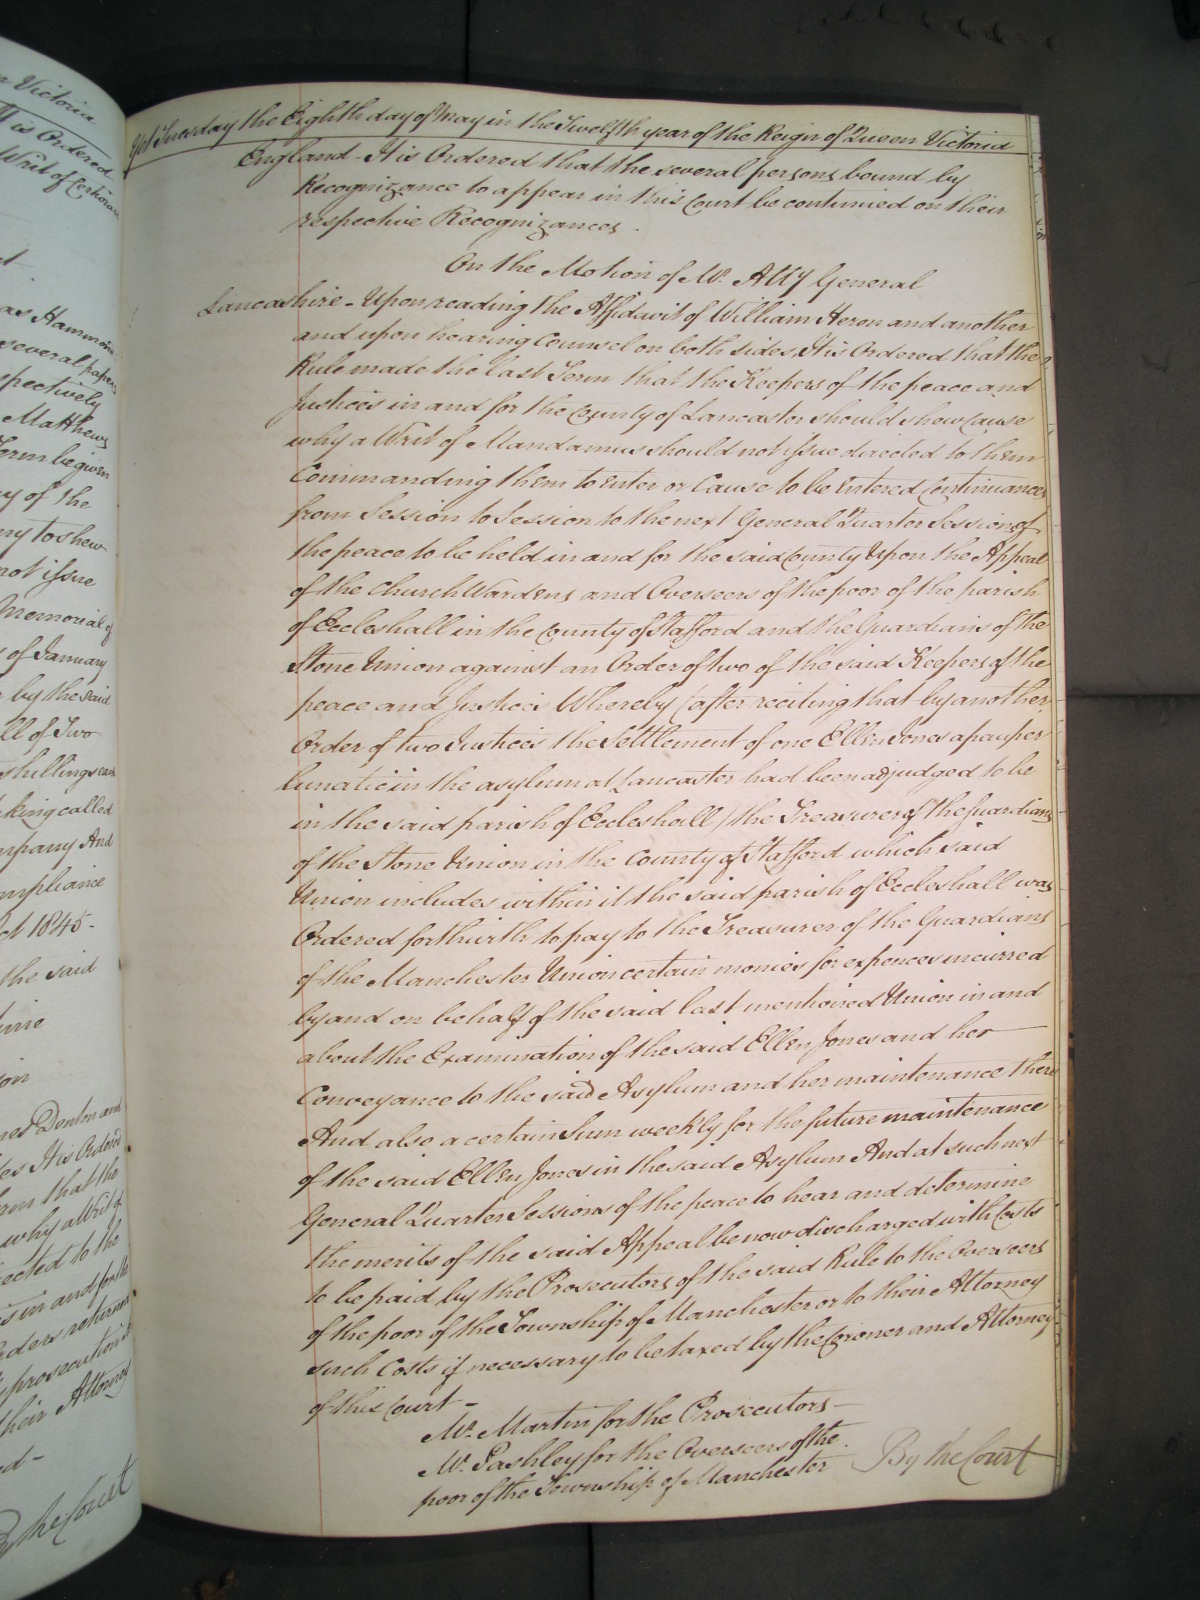 n Victoria
It is Ordered
Writ of Certiorari
as Hammond
several papers
spectively
Matthews
Term be given
y of the
ny to shew
not issue
Memorial of
of January
by the said
ll of Two
shillings each
king called
mpany And
mpliance
ch 1845 -
the said
nes Denton and
es It is Ordered
rm that the
why a Writ of
ected to the
s in and for the
ders returned
prosecution
their Attorney
By the Court
Yet Tuesday the Eighth day of May in the Twelfth year of the Reign of Queen Victoria
England - It is Ordered that the several persons bound by
Recognizance to appear in this Court be continued on their
respective Recognizances -
On the Motion of Mr. Atty General
Lancashire - Upon reading the Affidavit of William Heron and another
and upon hearing Counsel on both sides, It is Ordered that the
Rule made the last Term that the Keepers of the peace and
Justices in and for the County of Lancaster should shew cause
why a Writ of Mandamus should not issue directed to them
Commanding them to enter or Cause to be entered Continuances
from Session to Session to the next General Quarter Session of
the peace to be held in and for the said County Upon the Appeal
of the Church Wardens and Overseers of the poor of the parish
of Eccleshall in the County of Stafford and the Guardians of the
Stone Union against an Order of two of the said Keepers of the
peace and Justices Whereby (after reciting that by another
Order of two Justices the Settlement of one Ellen Jones a pauper
lunatic in the asylum at Lancaster had been adjudged to be
in the said parish of Eccleshall) the Treasurer of the Guardians
of the Stone Union in the County of Stafford which said
Union includes within it the said parish of Eccleshall was
Ordered forthwith to pay to the Treasurer of the Guardians
of the Manchester Union certain monies for expences incurred
by and on behalf of the said last mentioned Union in and
about the Examination of the said Ellen Jones and her
Conveyance to the said Asylum and her maintenance there
And also a certain Sum weekly for the future maintenance
of the said Ellen Jones in the said Asylum And at such next
General Quarter Sessions of the peace to hear and determine
the merits of the said Appeal be now discharged with Costs
to be paid by the Prosecutors of the said Rule to the Overseers
of the poor of the Township of Manchester or to their Attorney
such Costs if necessary to be taxed by the Coroner and Attorney
of this Court -
Mr. Martin for the Prosecutors -
Mr. Pashley for the Overseers of the
poor of the Township of Manchester
By the Court